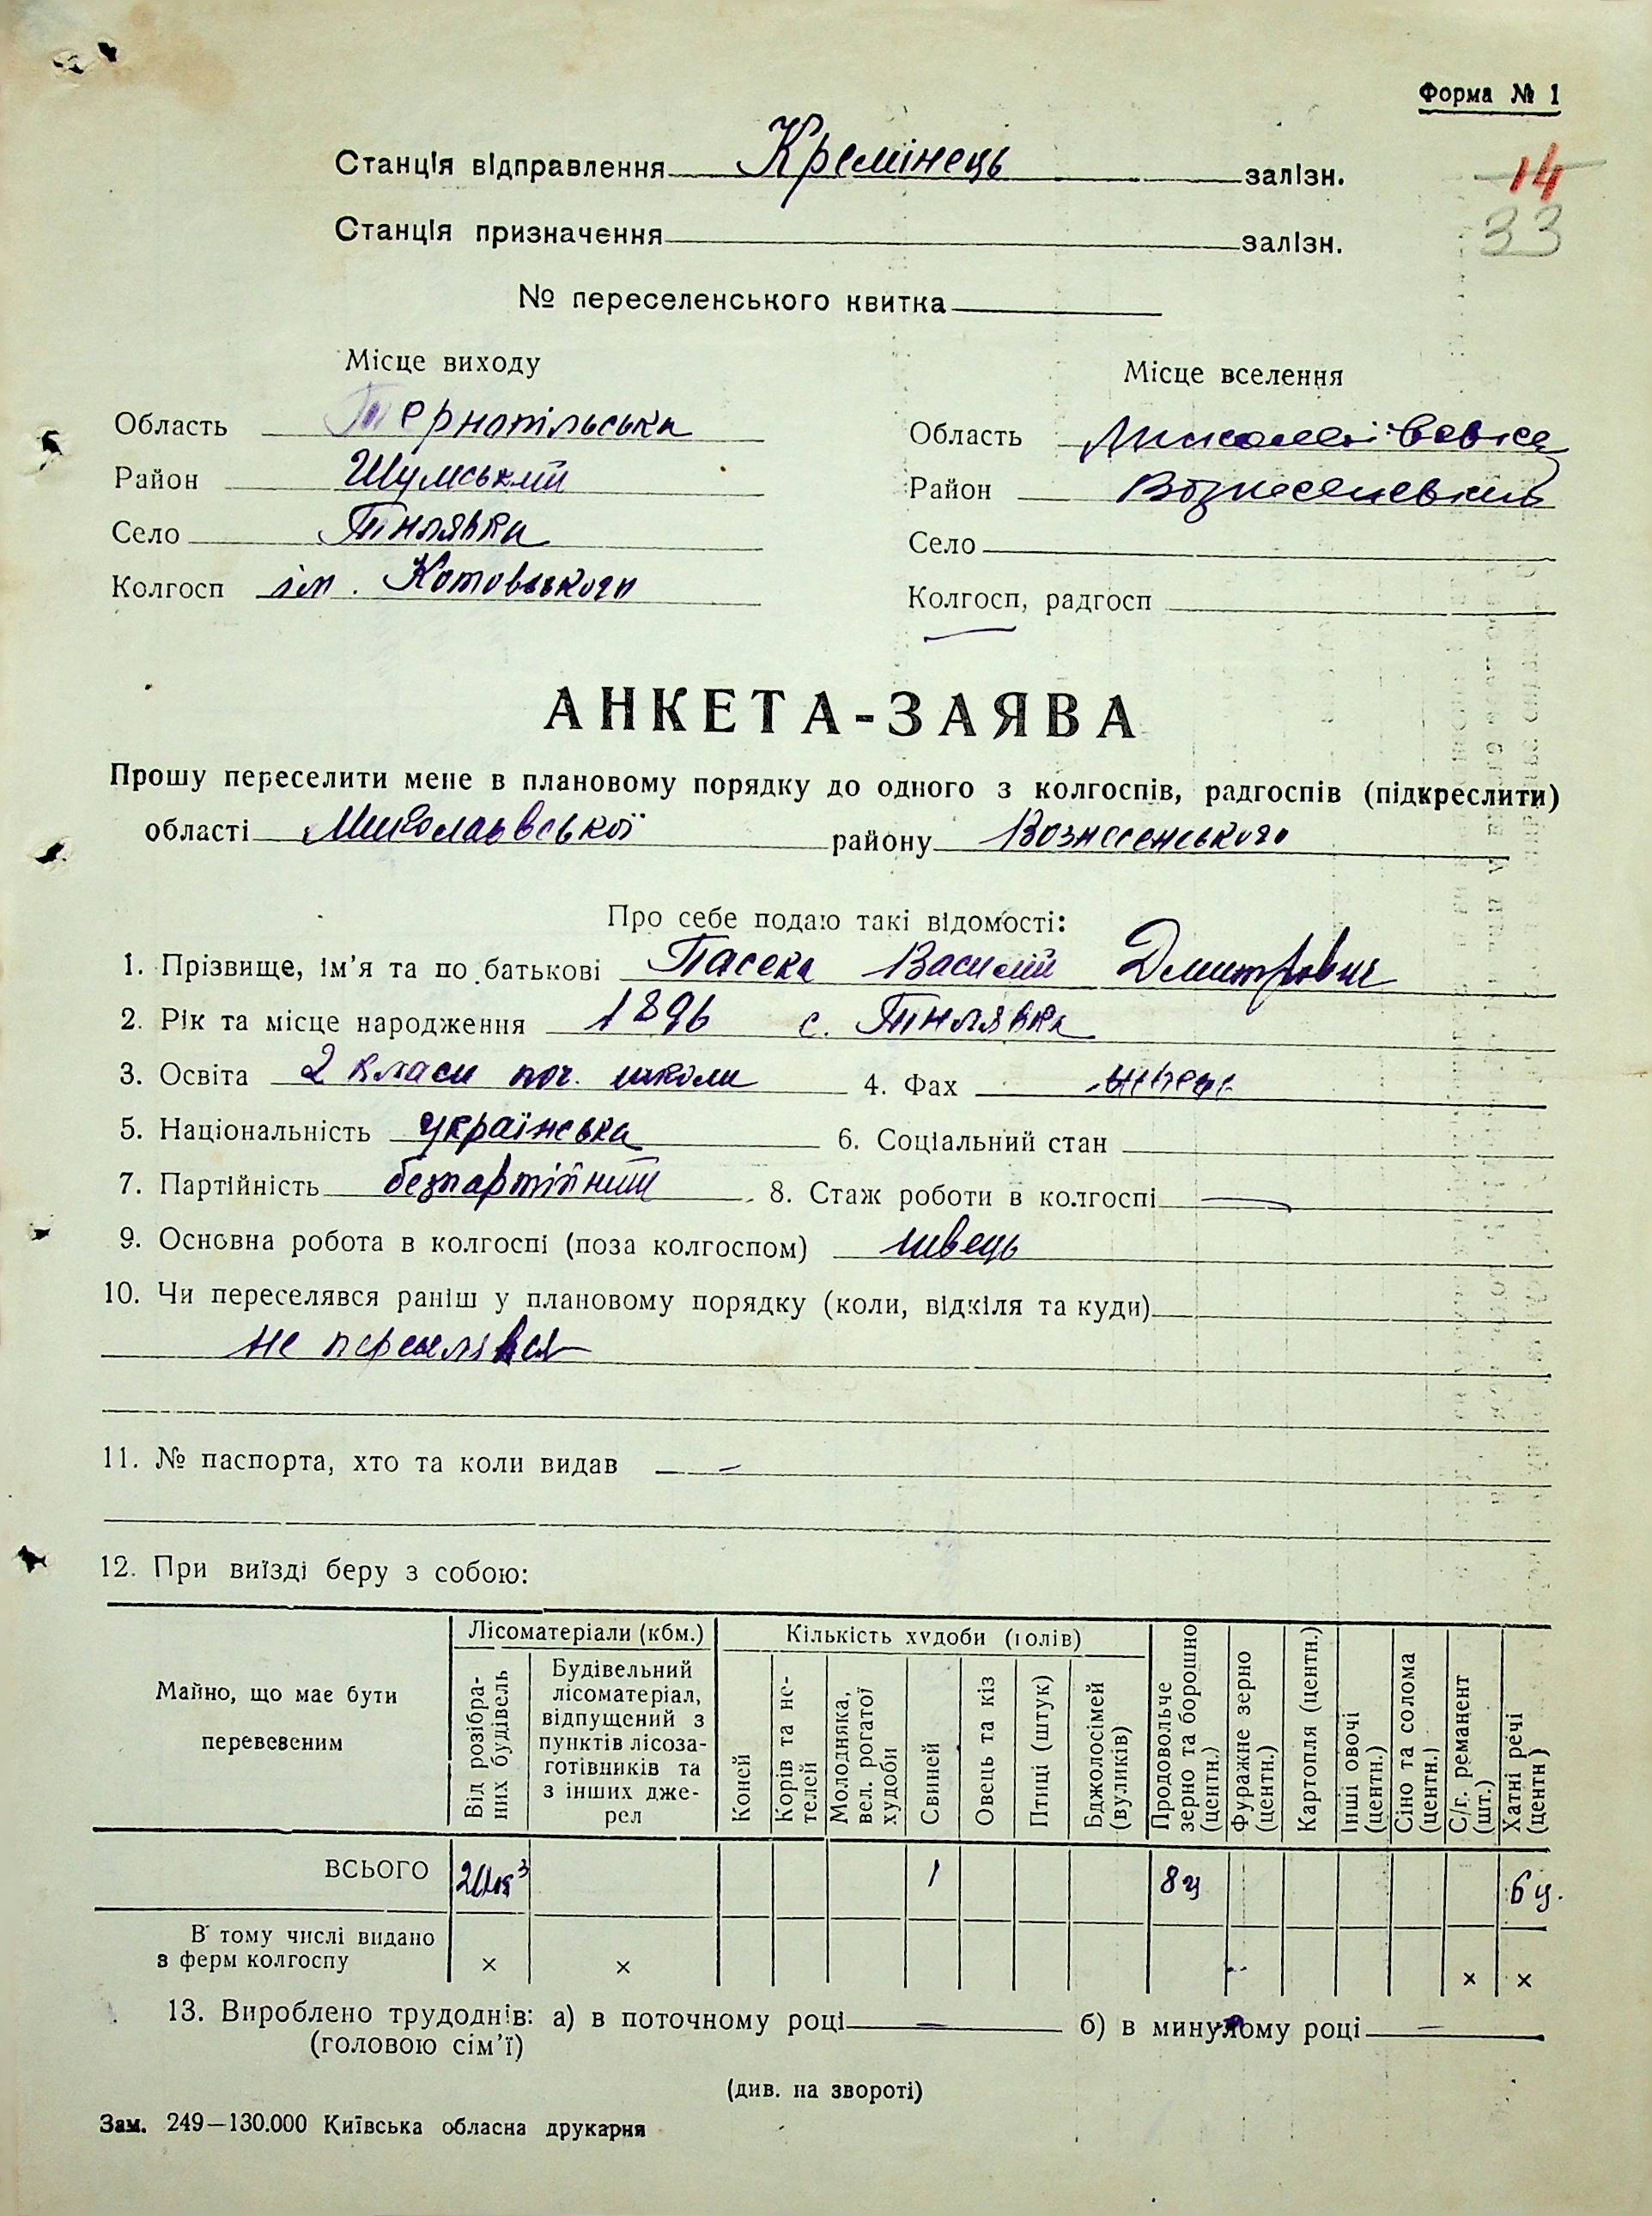 Форма № 1
Станція відправлення Кремінець залізн.
14
Станція призначення залізн.
33
№ переселенського квитка
Місце виходу
Місце вселення
Область Тернопільська
Область Миколаївська
Район Шумський
Район Вознесенський
Село Тилявка
Село
Колгосп ім. Котовського
Колгосп, радгосп
АНКЕТА-ЗАЯВА
Прошу переселити мене в плановому порядку до одного з колгоспів, радгоспів (підкреслити)
області Миколаївської району Вознесенського
Про себе подаю такі відомості:
1. Прізвище, ім'я та по батькові Пасека Василій Дмитрович
2. Рік та місце народження 1896 с. Тилявка
3. Освіта 2 класи поч. школи 4. Фах
5. Національність українська 6. Соціальний стан
7. Партійність безпартійний 8. Стаж роботи в колгоспі —
9. Основна робота в колгоспі (поза колгоспом) швець
10. Чи переселявся раніш у плановому порядку (коли, відкіля та куди)
не переселявся
11. № паспорта, хто та коли видав —
12. При виїзді беру з собою:
Майно, що має бути перевезеним
Лісоматеріали (кбм.)
Від розібраних будівель
Будівельний лісоматеріал, відпущений з пунктів лісозаготівників та з інших джерел
Кількість худоби (голів)
Коней
Корів та нетелей
Молодняка, вел. рогатої худоби
Свиней
Овець та кіз
Птиці (штук)
Бджолосімей (вуликів)
Продовольче зерно та борошно (центн.)
Фуражне зерно (центн.)
Картопля (центн.)
Інші овочі (центн.)
Сіно та солома (центн.)
С/г. реманент (шт.)
Хатні речі (центн)
ВСЬОГО 1 8ц 6ц.
В тому числі видано з ферм колгоспу × × × ×
13. Вироблено трудоднів: а) в поточному році — б) в минулому році —
(головою сім'ї)
(див. на звороті)
Зам. 249—130.000 Київська обласна друкарня